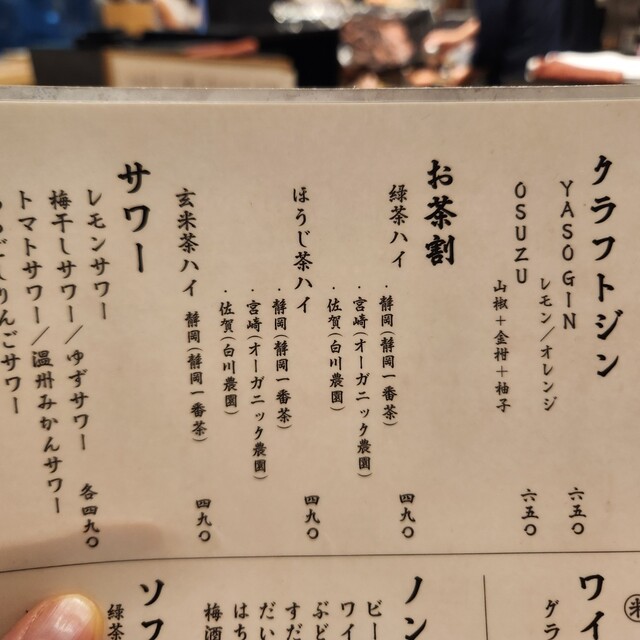 クラフトジン
YASO GIN 六五〇
レモン／オレンジ
OSUZU 六五〇
山椒＋金柑＋柚子
お茶割
緑茶ハイ 四九〇
・静岡（静岡一番茶）
・宮崎（オーガニック農園）
・佐賀（白川農園）
ほうじ茶ハイ 四九〇
・静岡（静岡一番茶）
・宮崎（オーガニック農園）
・佐賀（白川農園）
玄米茶ハイ 静岡（静岡一番茶） 四九〇
サワー
レモンサワー 各四九〇
梅干しサワー／ゆずサワー
トマトサワー／温州みかんサワー
りんごサワー
ワイ
グラ
ノン
ビー
ワイ
ぶど
すだ
だい
はち
梅酒
ソフ
緑茶